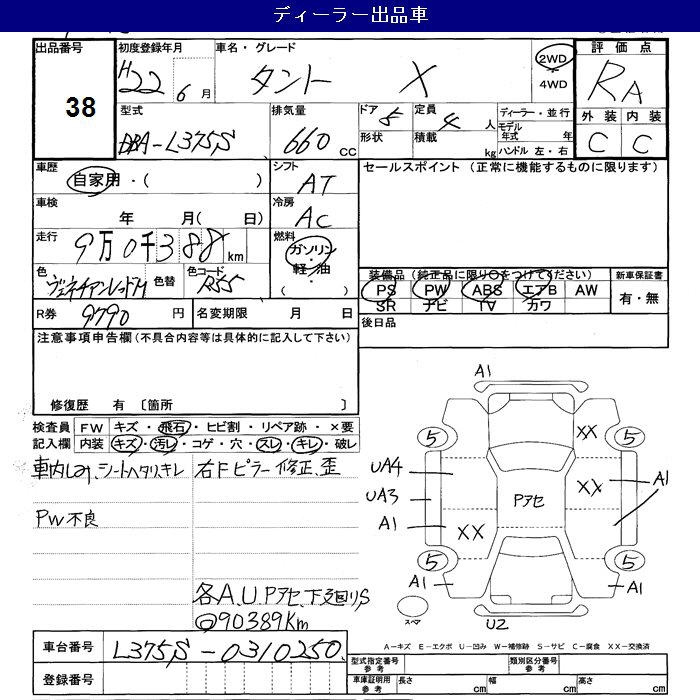 ディーラー出品車
出品番号
38
初度登録年月
H22 6月
車名・グレード
タント X
2WD
・
4WD
評価点
RA
外装 内装
C C
型式
DBA-L375S
排気量
660 CC
ドア 5
形状
定員 4人
積載 kg
ディーラー・並行
モデル年式 年
ハンドル 左・右
車歴
自家用・( )
シフト
AT
セールスポイント (正常に機能するものに限ります)
車検
年 月( 日)
冷房
AC
走行
9万0千388km
燃料
ガソリン
・
軽・油
( ・ )
色
ヴェネチアンレッドM
色替
色コード
R55
装備品 (純正品に限り○をつけてください)
PS PW ABS エアB AW
SR ナビ TV カワ
新車保証書
有・無
R券 9790 円
名変期限 月 日
後日品
注意事項申告欄(不具合内容等は具体的に記入して下さい)
修復歴 有 〔箇所 〕
検査員記入欄
FW キズ・飛石・ヒビ割・リペア跡・×要
内装 キズ・汚レ・コゲ・穴・スレ・キレ・破レ
車内しみ、シートヘタリ、キレ
右Fピラー修正、歪
PW不良
各A、U、Pアセ、下廻りS
@90389Km
A1
5
XX
5
UA4
UA3
A1
Pアセ
XX
A1
XX
5
5
A1
A1
スペア
U2
A-キズ E-エクボ U-凹み W-補修跡 S-サビ C-腐食 XX-交換済
車台番号 L375S-0310250
登録番号
型式指定番号 参考
類別区分番号 参考
車庫証明用 参考
長さ cm
幅 cm
高さ cm